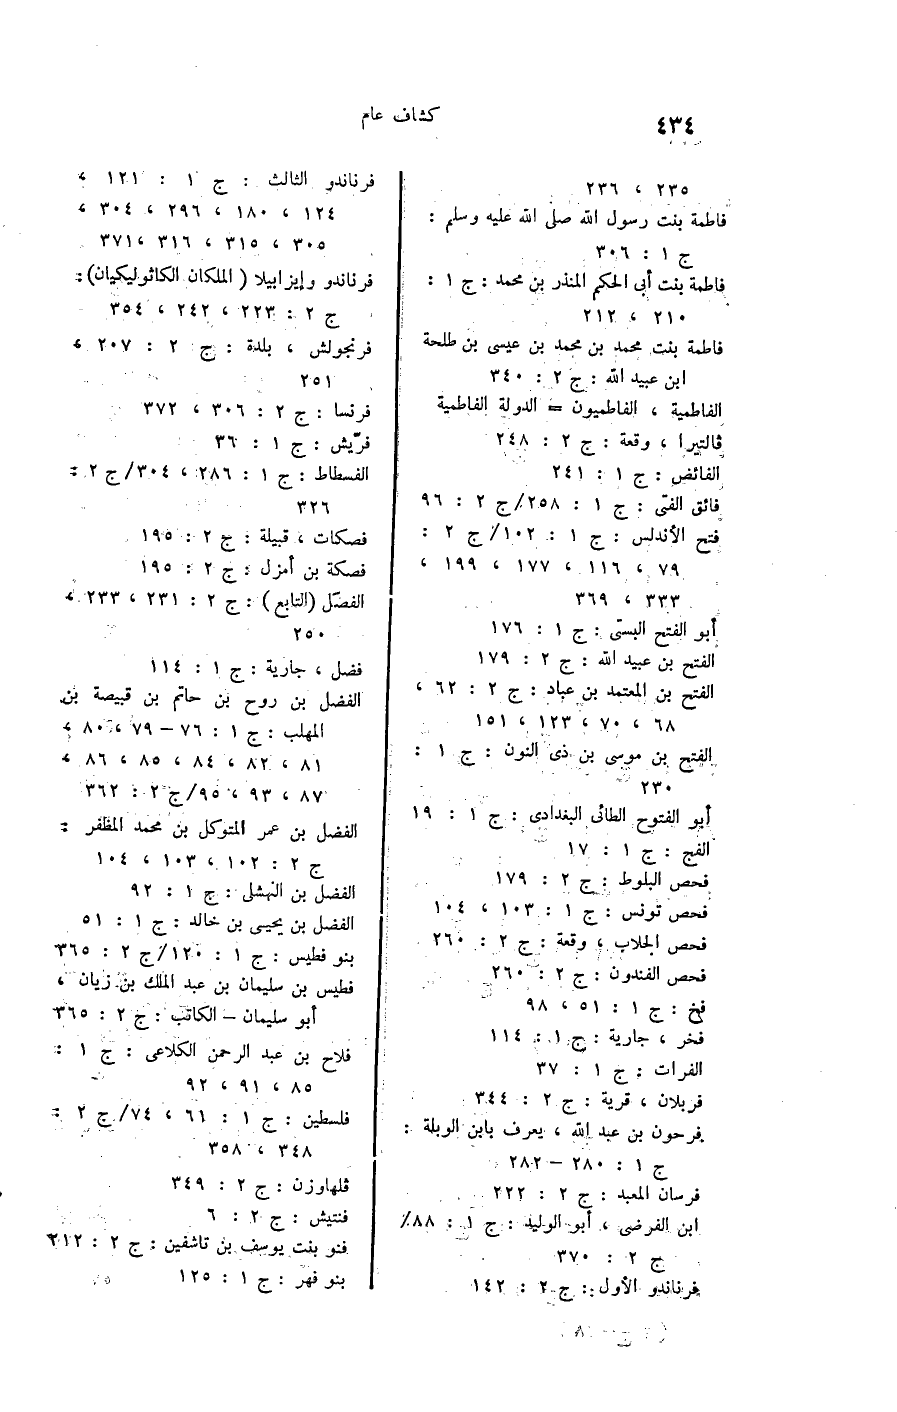 ٤٣٤
كشاف عام
٢٣٥ ، ٢٣٦
فاطمة بنت رسول الله صلى الله عليه وسلم :
ج ١ : ٣٠٦
فاطمة بنت أبى الحكم المنذر بن محمد : ج ١ :
٢١٠ ، ٢١٢
فاطمة بنت محمد بن محمد بن عيسى بن طلحة
ابن عبيد الله : ج ٢ : ٣٤٠
الفاطمية ، الفاطميون = الدولة الفاطمية
ڤالتيرا ، وقعة : ج ٢ : ٢٤٨
الفائض : ج ١ : ٢٤١
فائق الفتى : ج ١ : ٢٥٨/ج ٢ : ٩٦
فتح الأندلس : ج ١ : ١٠٢/ج ٢ :
٧٩ ، ١١٦ ، ١٧٧ ، ١٩٩ ،
٣٣٣ ، ٣٦٩
أبو الفتح البستى : ج ١ : ١٧٦
الفتح بن عبيد الله : ج ٢ : ١٧٩
الفتح بن المعتمد بن عباد : ج ٢ : ٦٢ ،
٦٨ ، ٧٠ ، ١٢٣ ، ١٥١
الفتح بن موسى بن ذى النون : ج ١ :
٢٣٠
أبو الفتوح الطائى البغدادى : ج ١ : ١٩
الفج : ج ١ : ١٧
فحص البلوط : ج ٢ : ١٧٩
فحص تونس : ج ١ : ١٠٣ ، ١٠٤
فحص الجلاب ، وقعة : ج ٢ : ٢٦٠
فحص الفندون : ج ٢ : ٢٦٠
فخ : ج ١ : ٥١ ، ٩٨
فخر ، جارية : ج ١ : ١١٤
الفرات : ج ١ : ٣٧
فربلان ، قرية : ج ٢ : ٣٤٤
فرحون بن عبد الله ، يعرف بابن الوبلة :
ج ١ : ٢٨٠ – ٢٨٢
فرسان المعبد : ج ٢ : ٢٢٢
ابن الفرضى ، أبو الوليد : ج ١ : ٨٨/
ج ٢ : ٣٧٠
فرناندو الأول : ج ٢ : ١٤٢
فرناندو الثالث : ج ١ : ١٢١ ،
١٢٤ ، ١٨٠ ، ٢٩٦ ، ٣٠٤ ،
٣٠٥ ، ٣١٥ ، ٣١٦ ، ٣٧١
فرناندو وإيزابيلا ( الملكان الكاثوليكيان) :
ج ٢ : ٢٢٣ ، ٢٤٢ ، ٣٥٤
فرنجولش ، بلدة : ج ٢ : ٢٠٧ ،
٢٥١
فرنسا : ج ٢ : ٣٠٦ ، ٣٧٢
فرّيش : ج ١ : ٣٦
الفسطاط : ج ١ : ٢٨٦ ، ٣٠٤/ج ٢ :
٣٢٦
فصكات ، قبيلة : ج ٢ : ١٩٥
فصكة بن أمزل : ج ٢ : ١٩٥
الفضل (التابع) : ج ٢ : ٢٣١ ، ٢٣٣ ،
٢٥٠
فضل ، جارية : ج ١ : ١١٤
الفضل بن روح بن حاتم بن قبيصة بن
المهلب : ج ١ : ٧٦ – ٧٩ ، ٨٠ ،
٨١ ، ٨٢ ، ٨٤ ، ٨٥ ، ٨٦ ،
٨٧ ، ٩٣ ، ٩٥/ج ٢ : ٣٦٢
الفضل بن عمر المتوكل بن محمد المظفر :
ج ٢ : ١٠٢ ، ١٠٣ ، ١٠٤
الفضل بن النهشلى : ج ١ : ٩٢
الفضل بن يحيى بن خالد : ج ١ : ٥١
بنو فطيس : ج ١ : ١٢٠/ج ٢ : ٣٦٥
فطيس بن سليمان بن عبد الملك بن زيان ،
أبو سليمان – الكاتب : ج ٢ : ٣٦٥
فلاح بن عبد الرحمن الكلاعى : ج ١ :
٨٥ ، ٩١ ، ٩٢
فلسطين : ج ١ : ٦١ ، ٧٤/ج ٢ :
٣٤٨ ، ٣٥٨
ڤلهاوزن : ج ٢ : ٣٤٩
فنتيش : ج ٢ : ٦
فنو بنت يوسف بن تاشفين : ج ٢ : ٢١٢
بنو فهر : ج ١ : ١٢٥